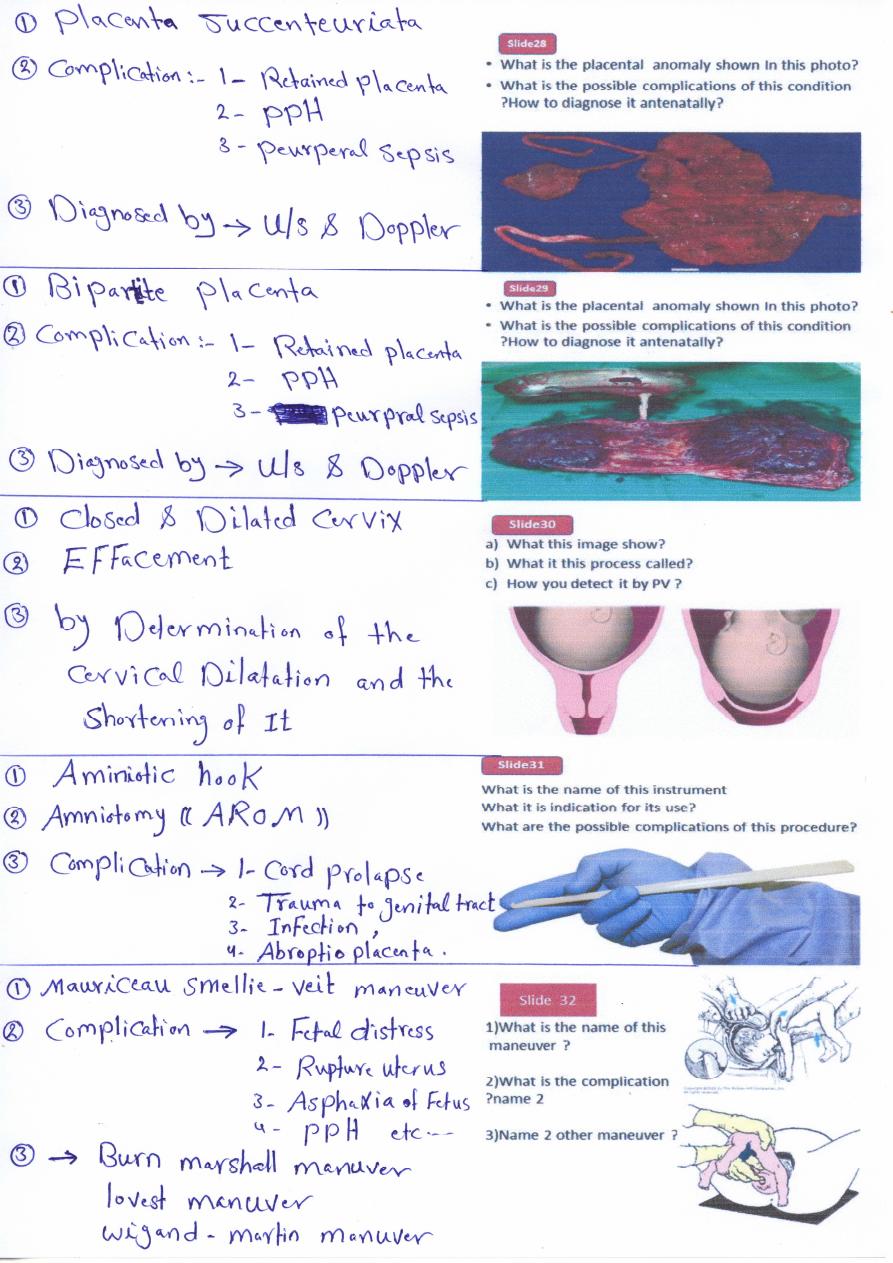 ① Placenta Succenteuriata
② Complication :- 1- Retained placenta
2- PPH
3- peurperal sepsis
③ Diagnosed by → U/s & Doppler
Slide28
• What is the placental anomaly shown In this photo?
• What is the possible complications of this condition
?How to diagnose it antenatally?
① Bipartite placenta
② Complication :- 1- Retained placenta
2- PPH
3- peurpral sepsis
③ Diagnosed by → U/s & Doppler
Slide29
• What is the placental anomaly shown In this photo?
• What is the possible complications of this condition
?How to diagnose it antenatally?
① Closed & Dilated Cervix
② Effacement
③ by Determination of the
Cervical Dilatation and the
Shortening of It
Slide30
a) What this image show?
b) What it this process called?
c) How you detect it by PV ?
① Aminiotic hook
② Amniotomy (( AROM ))
③ Complication → 1- Cord prolapse
2- Trauma to genital tract
3- Infection ,
4- Abroptio placenta .
Slide31
What is the name of this instrument
What it is indication for its use?
What are the possible complications of this procedure?
① Mauriceau smellie - veit maneuver
② Complication → 1- Fetal distress
2- Rupture uterus
3- Asphaxia of Fetus
4- PPH etc---
③ → Burn marshall manuver
lovest manuver
wigand - martin manuver
Slide 32
1)What is the name of this
maneuver ?
2)What is the complication
?name 2
3)Name 2 other maneuver ?